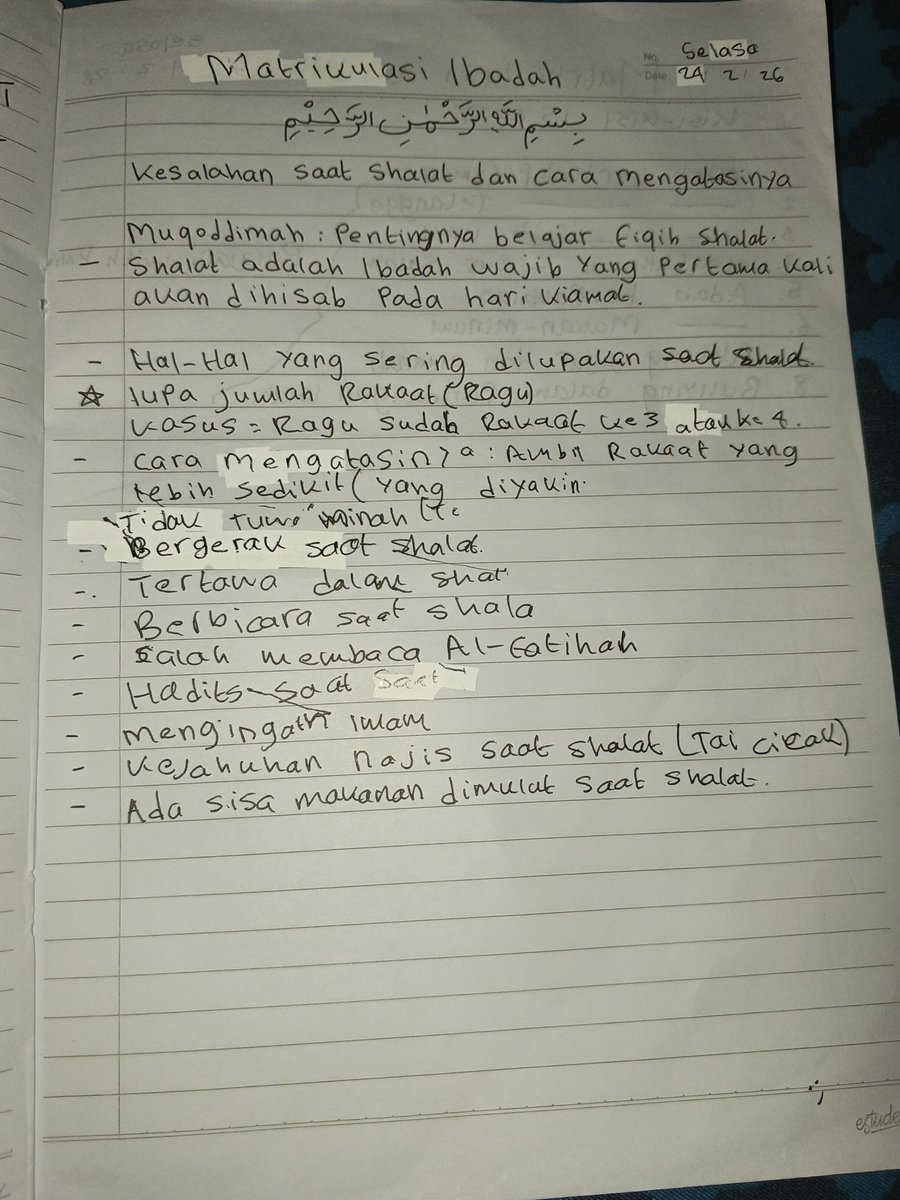 Matrikulasi Ibadah
No. Selasa
Date. 24 2 26
بِسْمِ اللَّهِ الرَّحْمٰنِ الرَّحِيْمِ
Kesalahan saat Shalat dan cara mengatasinya
Muqoddimah : Pentingnya belajar Fiqih Shalat.
- Shalat adalah Ibadah wajib Yang Pertama kali
akan dihisab Pada hari kiamat.
- Hal-Hal Yang sering dilupakan saat Shalat.
☆ lupa jumlah Rakaat (Ragu)
Kasus = Ragu sudah Rakaat ke 3 atau ke 4.
- Cara Mengatasinya : Rakaat yang
lebih sedikit ( yang diyakin
Tidak
- Bergerak saat shalat.
- Tertawa dalam
- Berbicara saat shala
- Salah membaca Al-Fatihah
- Hadits saat saat
- mengingatn imam
- Kejahuhan najis saat shalat (Tai cicak)
- Ada sisa makanan dimulut saat shalat.